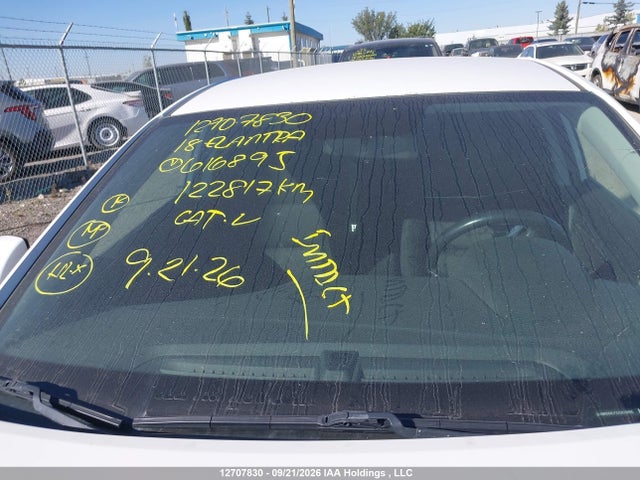 12907830
18 ELANTRA
616895
122817 KM
CAT.✓
K
M
9.21.26
12707830 - 09/21/2026 IAA Holdings , LLC